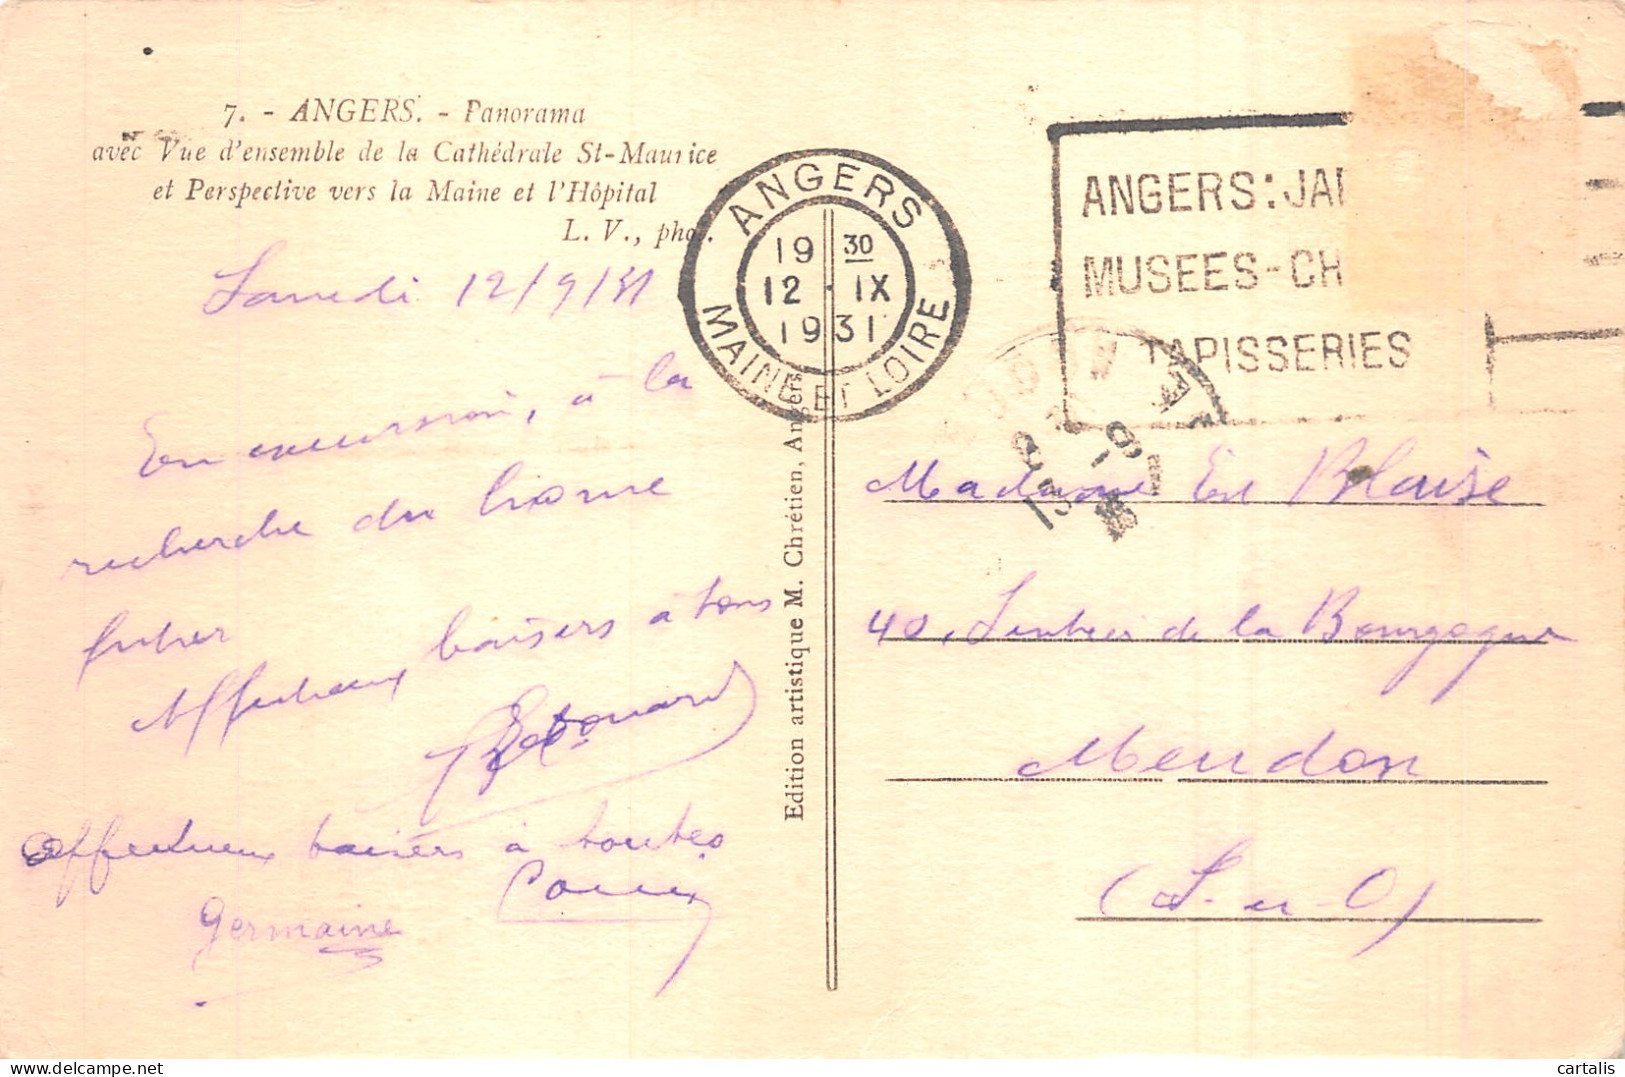 7. - ANGERS. - Panorama
avec Vue d'ensemble de la Cathédrale St-Maurice
et Perspective vers la Maine et l'Hôpital
L. V., phot.
Samedi 12/9/31
En excursion, à la
recherche du home
futur
Affectueux baisers à tous
Edouard
Affectueux baisers à toutes
Germaine
Edition artistique M. Chrétien, Angers
ANGERS
19 30
12 · IX
1931
MAINE ET LOIRE
ANGERS: JAR
MUSEES - CH
TAPISSERIES
-9
Madame Blaise
40, Sentier de la Bourgogne
Meudon
(S.-et-O)
cartalis